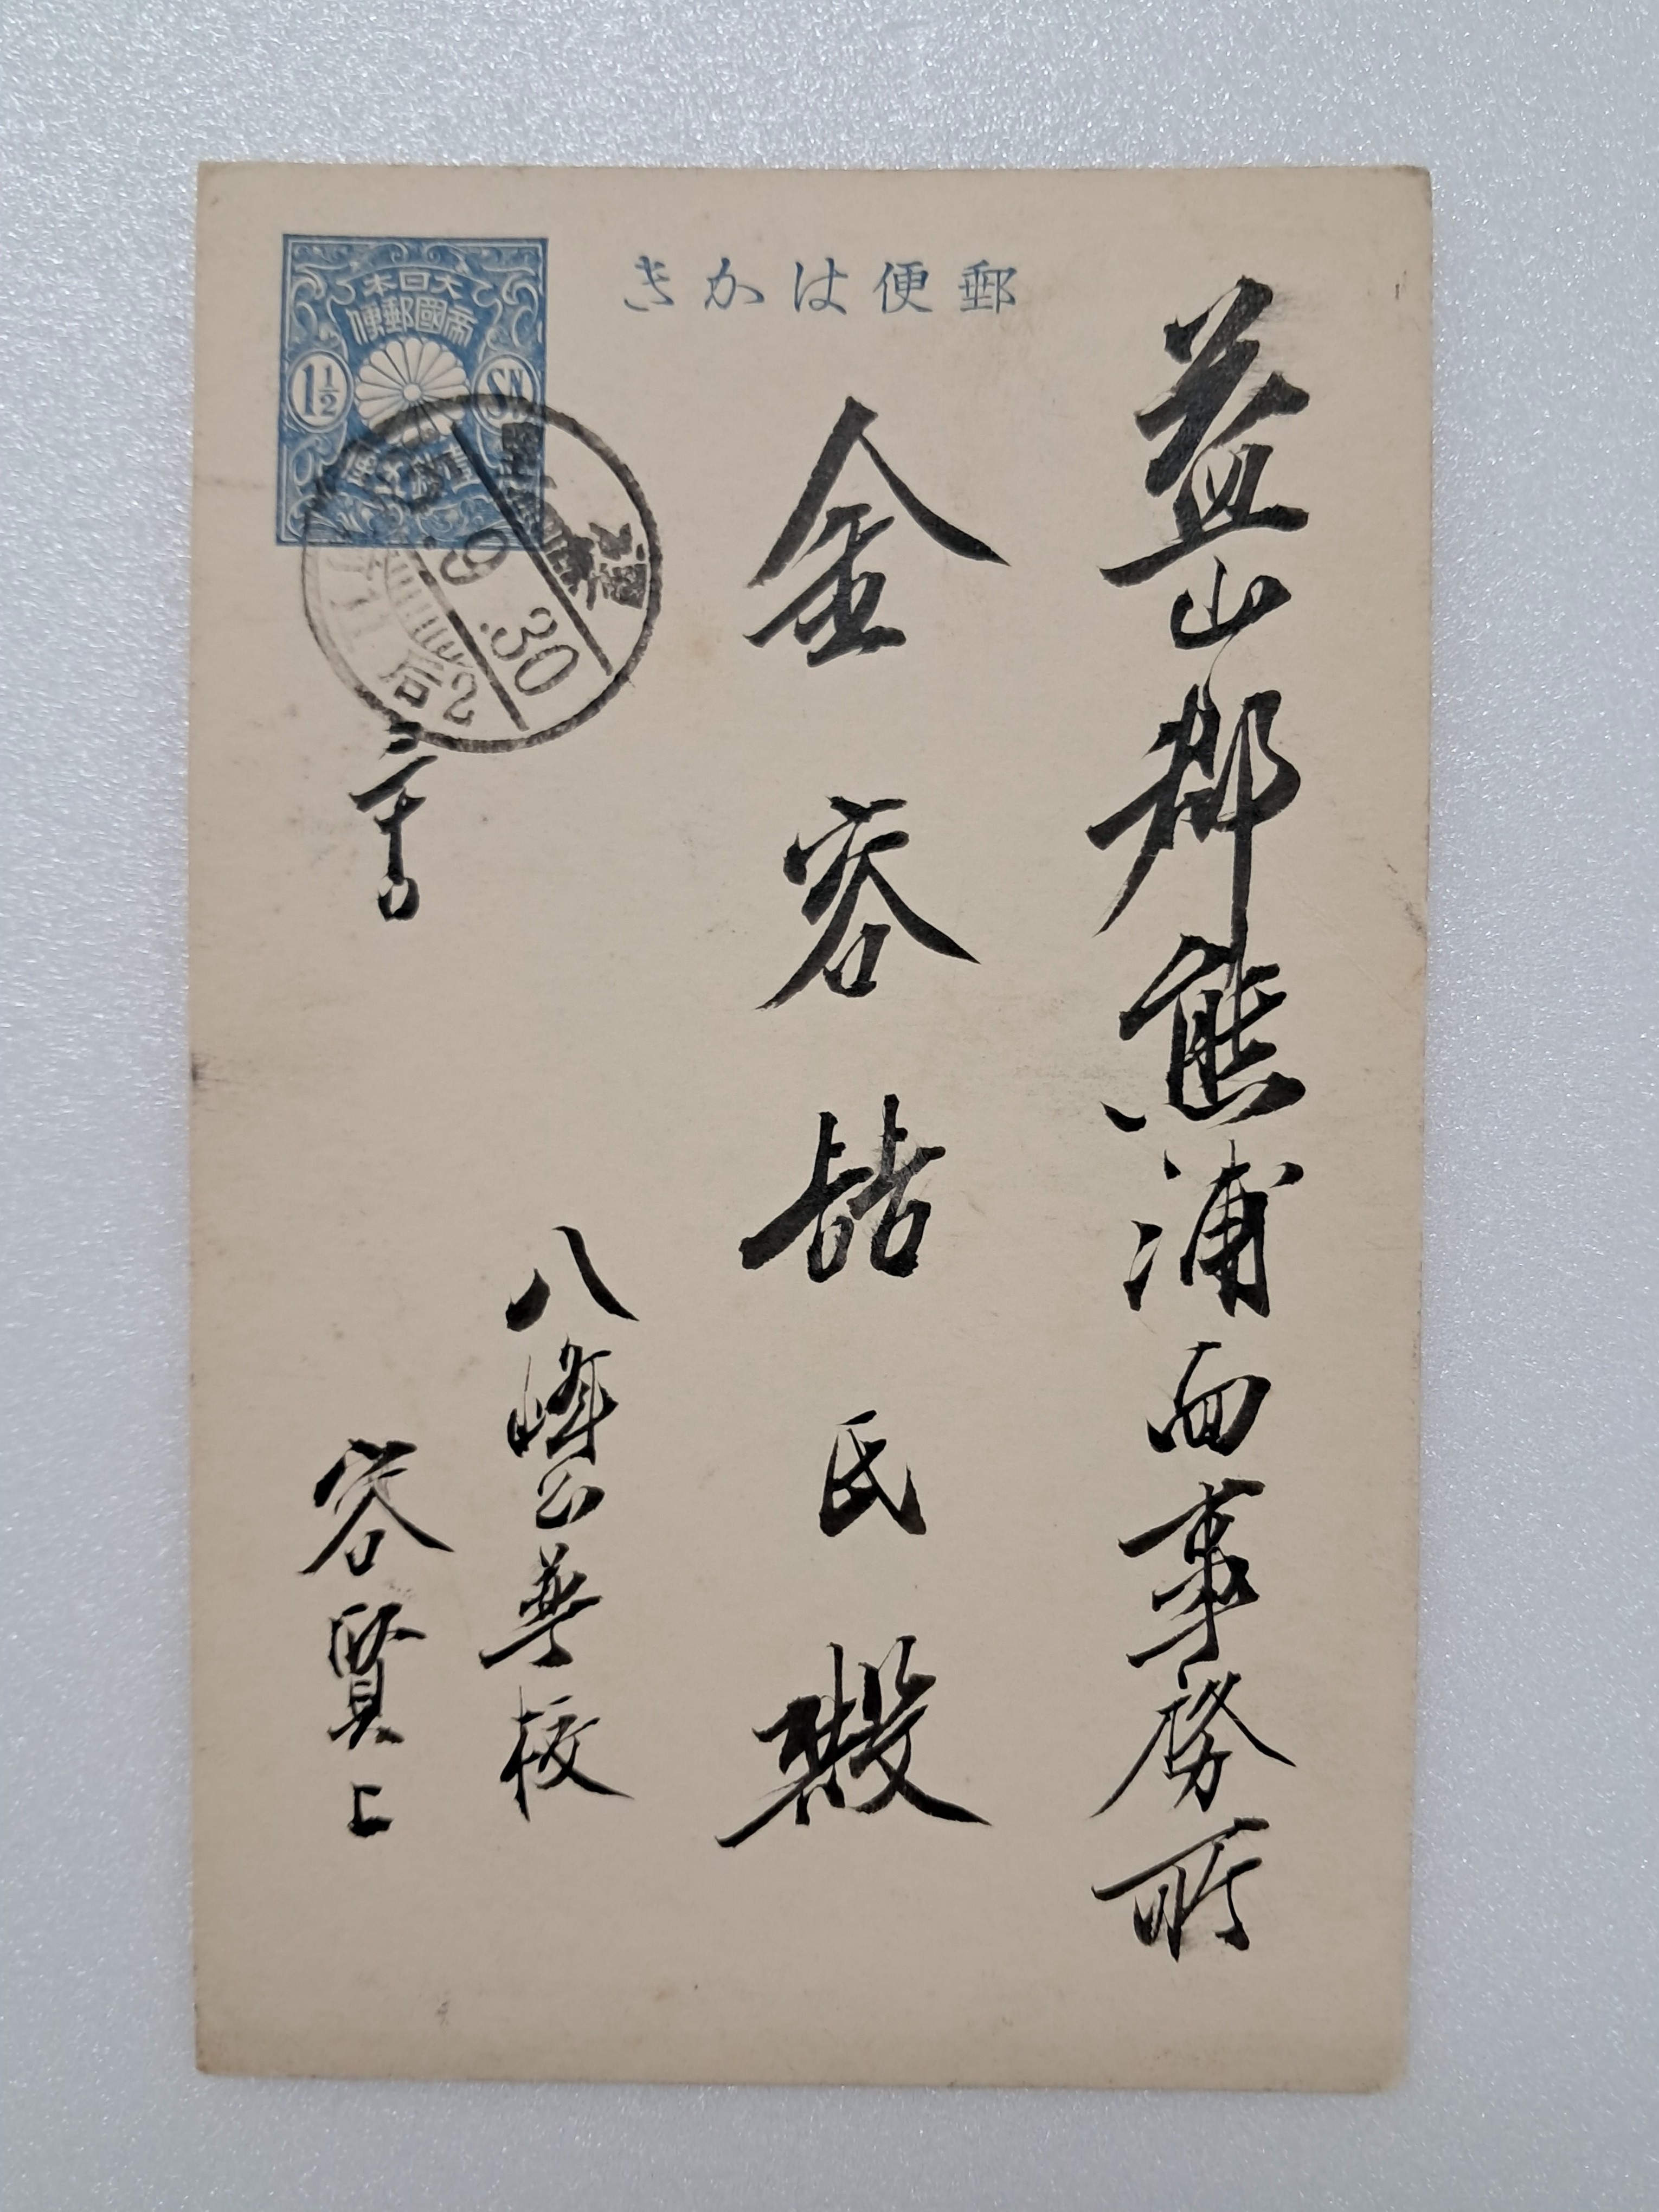 郵便はかき
大日本
帝國郵便
1½
SN
9.30
后
2
益山郡熊浦面事務所
金容喆氏殿
八峰公普校
容賢上
三十日